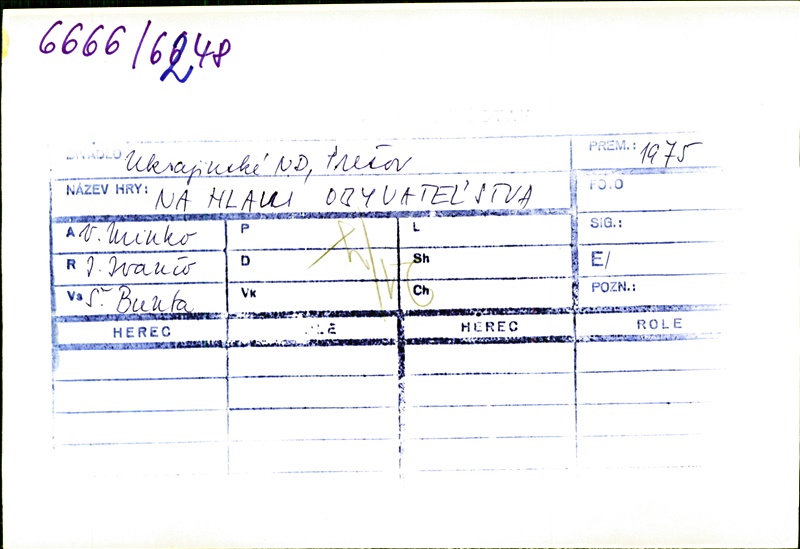 6666/6248
DIVADLO Ukrajinské ND, Prešov PREM.: 1975
NÁZEV HRY: NA HLAVU OBYVATEĽSTVA FO.O
A V. Minko P L SIG.:
R I. Ivančo D Sh E/
Va Š. Bunta Vk Ch POZN.:
HEREC ROLE HEREC ROLE